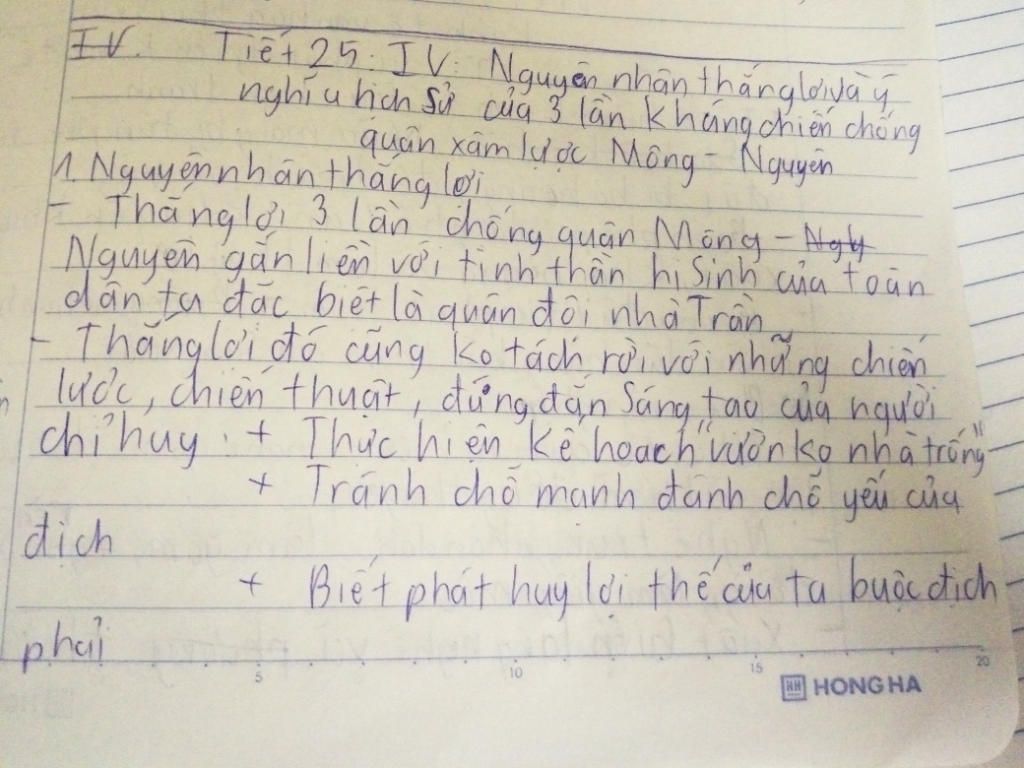 IV. Tiết 25: IV: Nguyên nhân thắng lợi và ý
nghĩa lịch sử của 3 lần kháng chiến chống
quân xâm lược Mông - Nguyên
1. Nguyên nhân thắng lợi
- Thắng lợi 3 lần chống quân Mông - Ngy
Nguyên gắn liền với tinh thần hi sinh của toàn
dân ta đặc biệt là quân đội nhà Trần
- Thắng lợi đó cũng ko tách rời với những chiến
lược, chiến thuật, đứng đắn sáng tạo của người
chỉ huy. + Thực hiện kế hoạch "vườn ko nhà trống"
+ Tránh chỗ mạnh đánh chỗ yếu của
địch
+ Biết phát huy lợi thế của ta buộc địch
phải
5 10 15 20
HH HONG HA